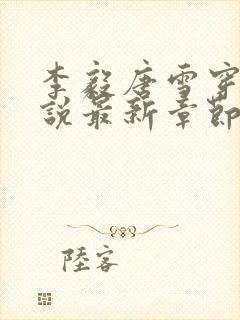 李毅唐雪穿
說最新章節
陸客